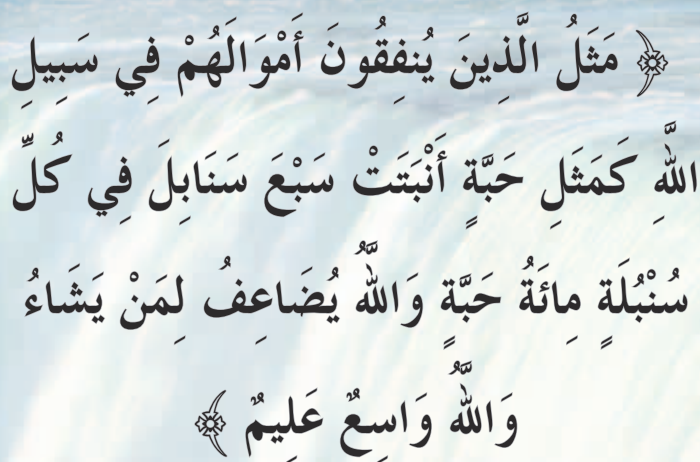 ﴿ مَثَلُ الَّذِينَ يُنفِقُونَ أَمْوَالَهُمْ فِي سَبِيلِ
اللَّهِ كَمَثَلِ حَبَّةٍ أَنْبَتَتْ سَبْعَ سَنَابِلَ فِي كُلِّ
سُنْبُلَةٍ مِائَةُ حَبَّةٍ وَاللَّهُ يُضَاعِفُ لِمَنْ يَشَاءُ
وَاللَّهُ وَاسِعٌ عَلِيمٌ ﴾